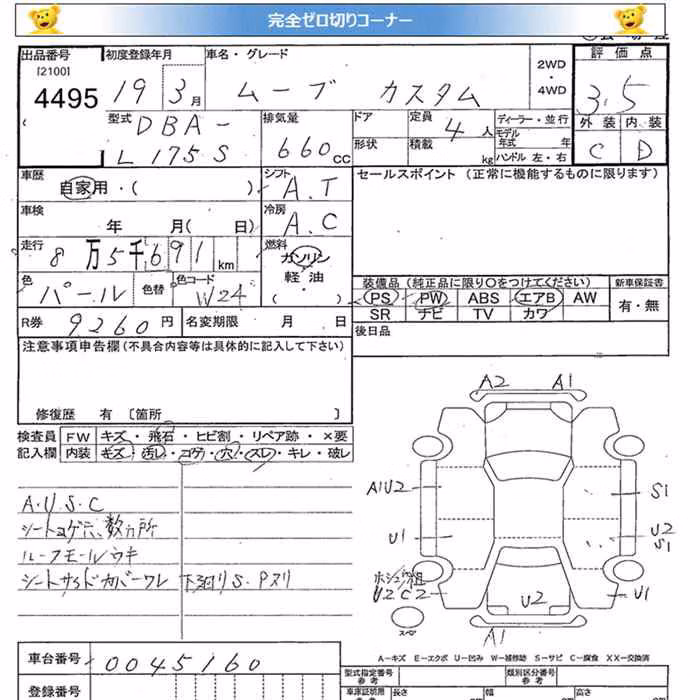 完全ゼロ切りコーナー
出品番号 初度登録年月 車名・グレード 2WD ・ 4WD 評価点
[2100]
4495 19 3月 ムーブ カスタム 3.5
型式 DBA- L175S 排気量 660cc ドア 定員 4人 ディーラー・並行 外装 内装
形状 積載 kg モデル年式 年 ハンドル 左・右 C D
車歴 自家用・( ) シフト A.T セールスポイント (正常に機能するものに限ります)
車検 年 月( 日) 冷房 A.C
走行 8万5千691km 燃料 ガソリン 軽油 ( ・ )
色 パール 色替 色コード W24
装備品(純正品に限り○をつけてください) 新車保証書
PS PW ABS エアB AW 有・無
SR ナビ TV カワ
R券 9260円 名変期限 月 日 後日品
注意事項申告欄(不具合内容等は具体的に記入して下さい)
修復歴 有 [箇所 ]
検査員 FW キズ・飛石・ヒビ割・リペア跡・×要
記入欄 内装 キズ・汚レ・コゲ・穴・スレ・キレ・破レ
A2 A1
A1U2 S1
U1 U2 S1
U2C2 U2 U1
A1
A.U.S.C
シートコゲ穴、数ヵ所
ルーフモールウキ
シートサイドカバーワレ 下廻りS.Pヌリ
スペア
A-キズ E-エクボ U-凹み W-補修跡 S-サビ C-腐食 XX-交換済
車台番号 0045160
型式指定番号 参考 類別区分番号 参考
登録番号 車庫証明用 長さ 幅 高さ